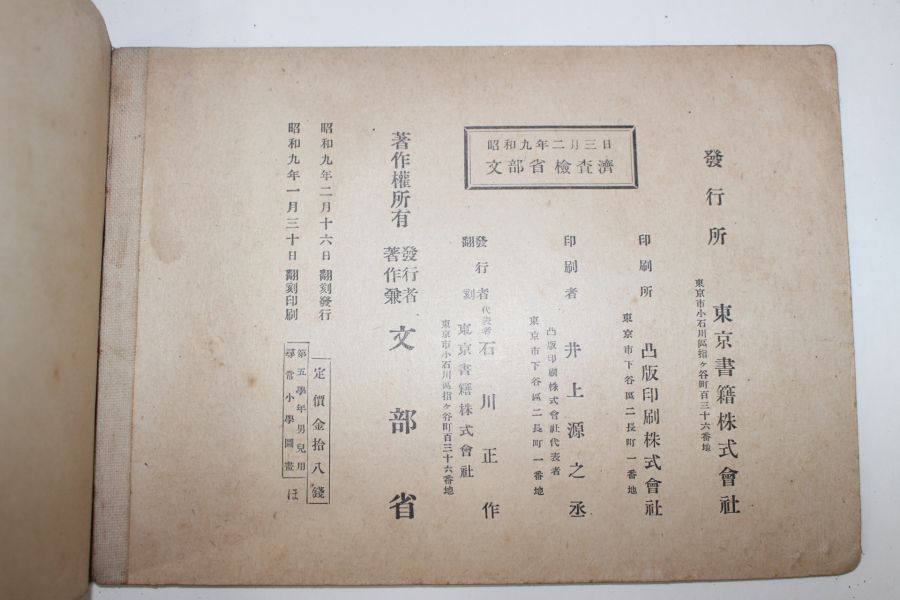 尋常小學圖畫
第五學年男兒用
ほ
定價金拾八錢
昭和九年一月三十日 翻刻印刷
昭和九年二月十六日 翻刻發行
著作權所有
著作兼
發行者
文部省
昭和九年二月三日
文部省檢査濟
翻刻
發行者
東京市小石川區指ヶ谷町百三十六番地
東京書籍株式會社
代表者 石川正作
印刷者
東京市下谷區二長町一番地
凸版印刷株式會社代表者
井上源之丞
印刷所
東京市下谷區二長町一番地
凸版印刷株式會社
發行所
東京市小石川區指ヶ谷町百三十六番地
東京書籍株式會社